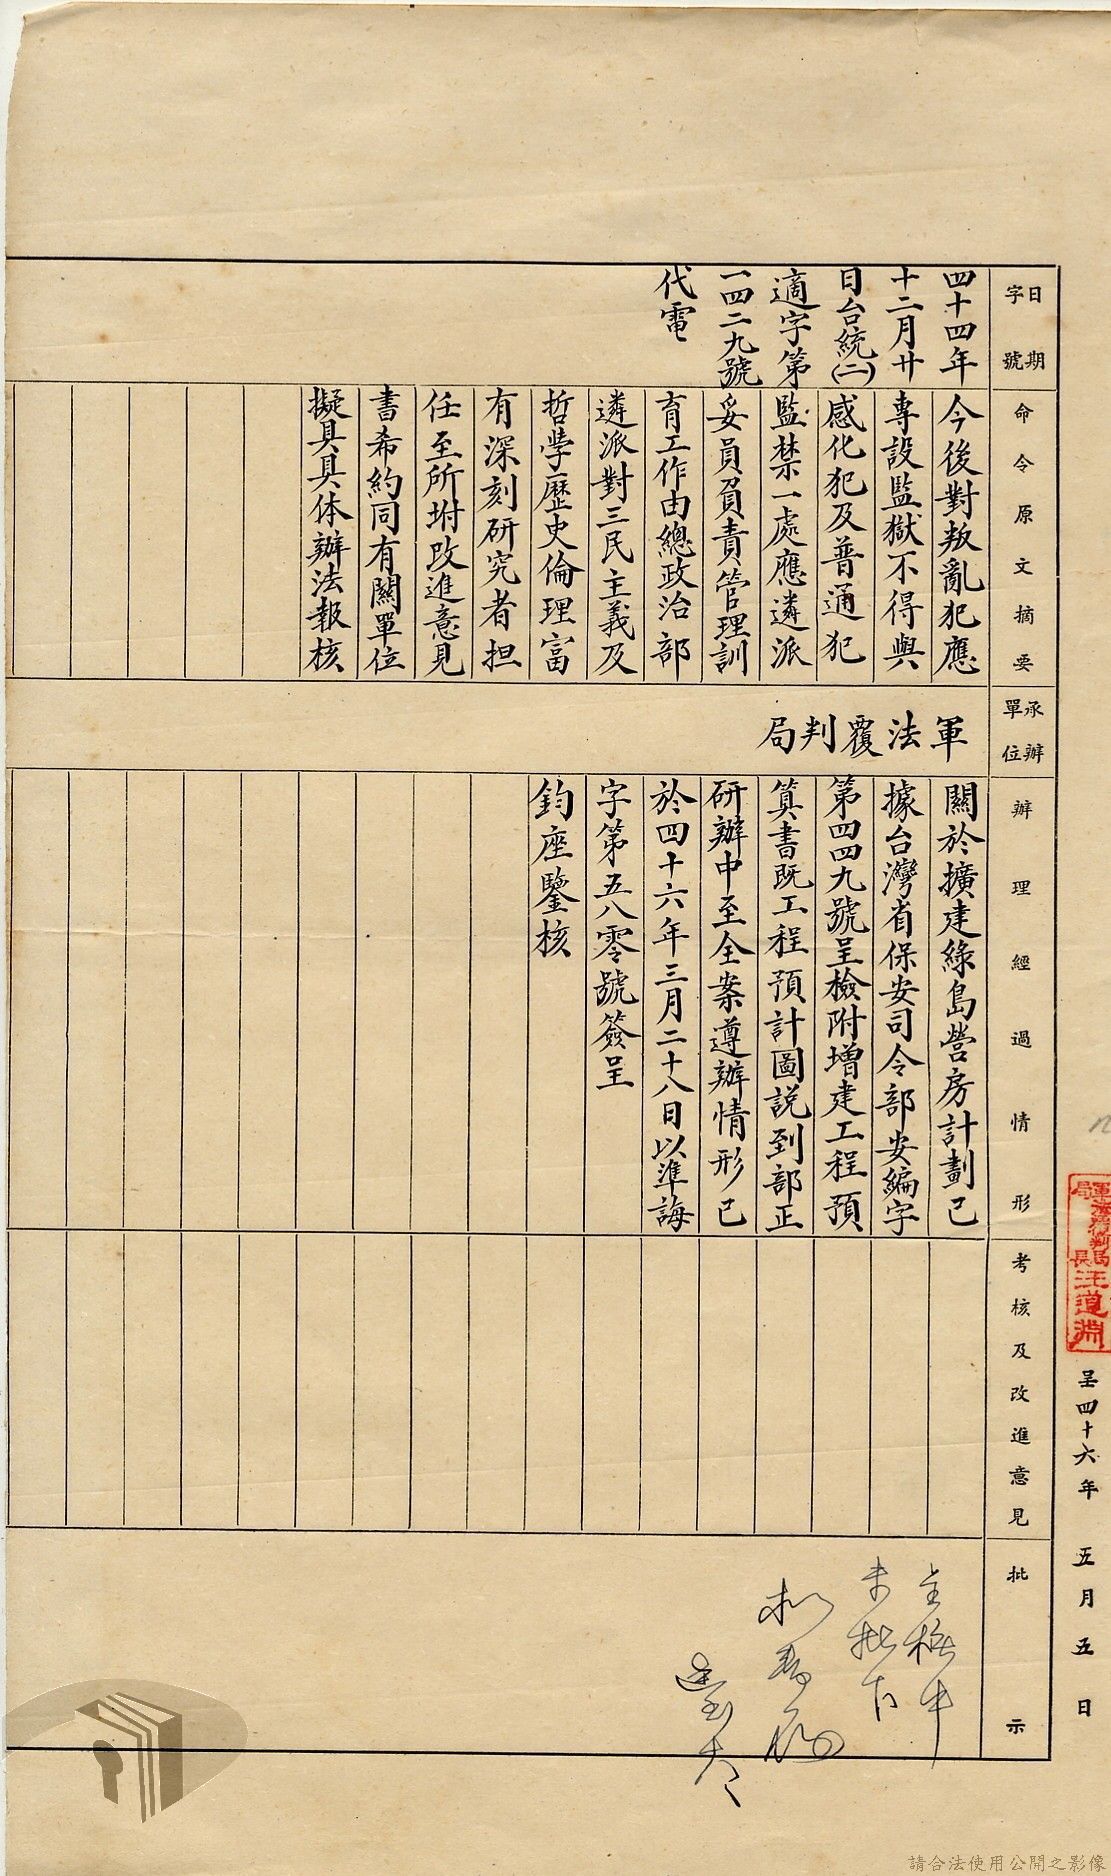 日期
字號
四十四年
十二月廿
日台統(二)
適字第
一四二九號
代電
命令原文摘要
今後對叛亂犯應
專設監獄不得與
感化犯及普通犯
監禁一處應遴派
妥員負責管理訓
育工作由總政治部
遴派對三民主義及
哲學歷史倫理富
有深刻研究者担
任至所坿改進意見
書希約同有關單位
擬具具体辦法報核
承辦
單位
軍法覆判局
辦理經過情形
關於擴建綠島營房計劃已
據台灣省保安司令部安編字
第四四九號呈檢附增建工程預
算書既工程預計圖說到部正
研辦中至全案遵辦情形已
於四十六年三月二十八日以準誨
字第五八零號簽呈
鈞座鑒核
考核及改進意見
批示
汪道淵
呈四十六年 五月五日
請合法使用公開之影像